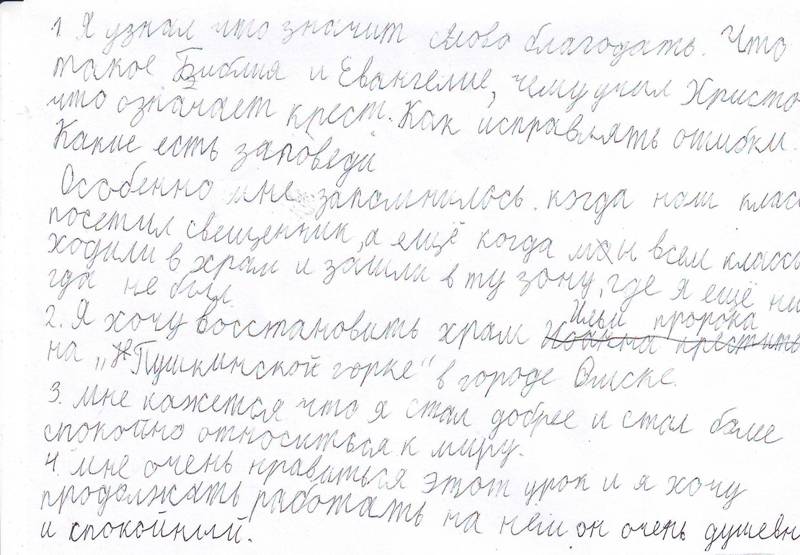 1 Я узнал что значит слово благодать. Что
такое Библия и Евангелие, чему учил Христо
что означает крест. Как исправлять ошибки.
Какие есть заповеди
Особенно мне запомнилось когда наш клас
посетил свещенник, а ещё когда мы всем класс
ходили в храм и зашли в ту зону, где я ещё ни
гда не был.
Ильи пророка
2. Я хочу восстановить храм Иоанна крестить
на „Пушкинской горке“ в городе Омске.
3. мне кажеться что я стал добрее и стал более
спокойно относиться к миру.
4. мне очень нравиться этот урок и я хочу
продолжать работать на нём он очень душевн
и спокойний.